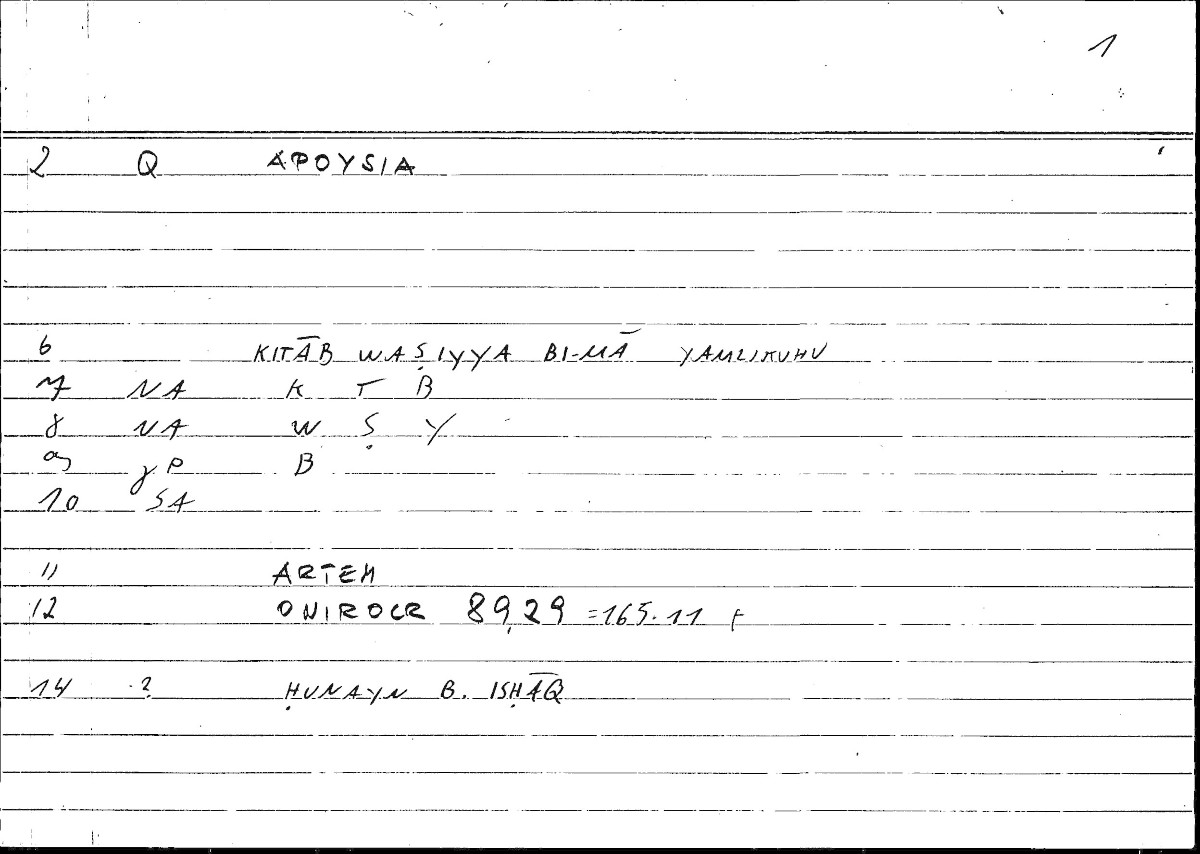 1
2 Q APOYSIA
6 KITĀB WAṢIYYA BI-MĀ YAMLIKUHU
7 NA K T B
8 NA W Ṣ Y
9 gP B
10 SA
11 ARTEM
12 ONIROCR 89,29 =165.11
14 2 ḤUNAYN B. ISḤĀQ